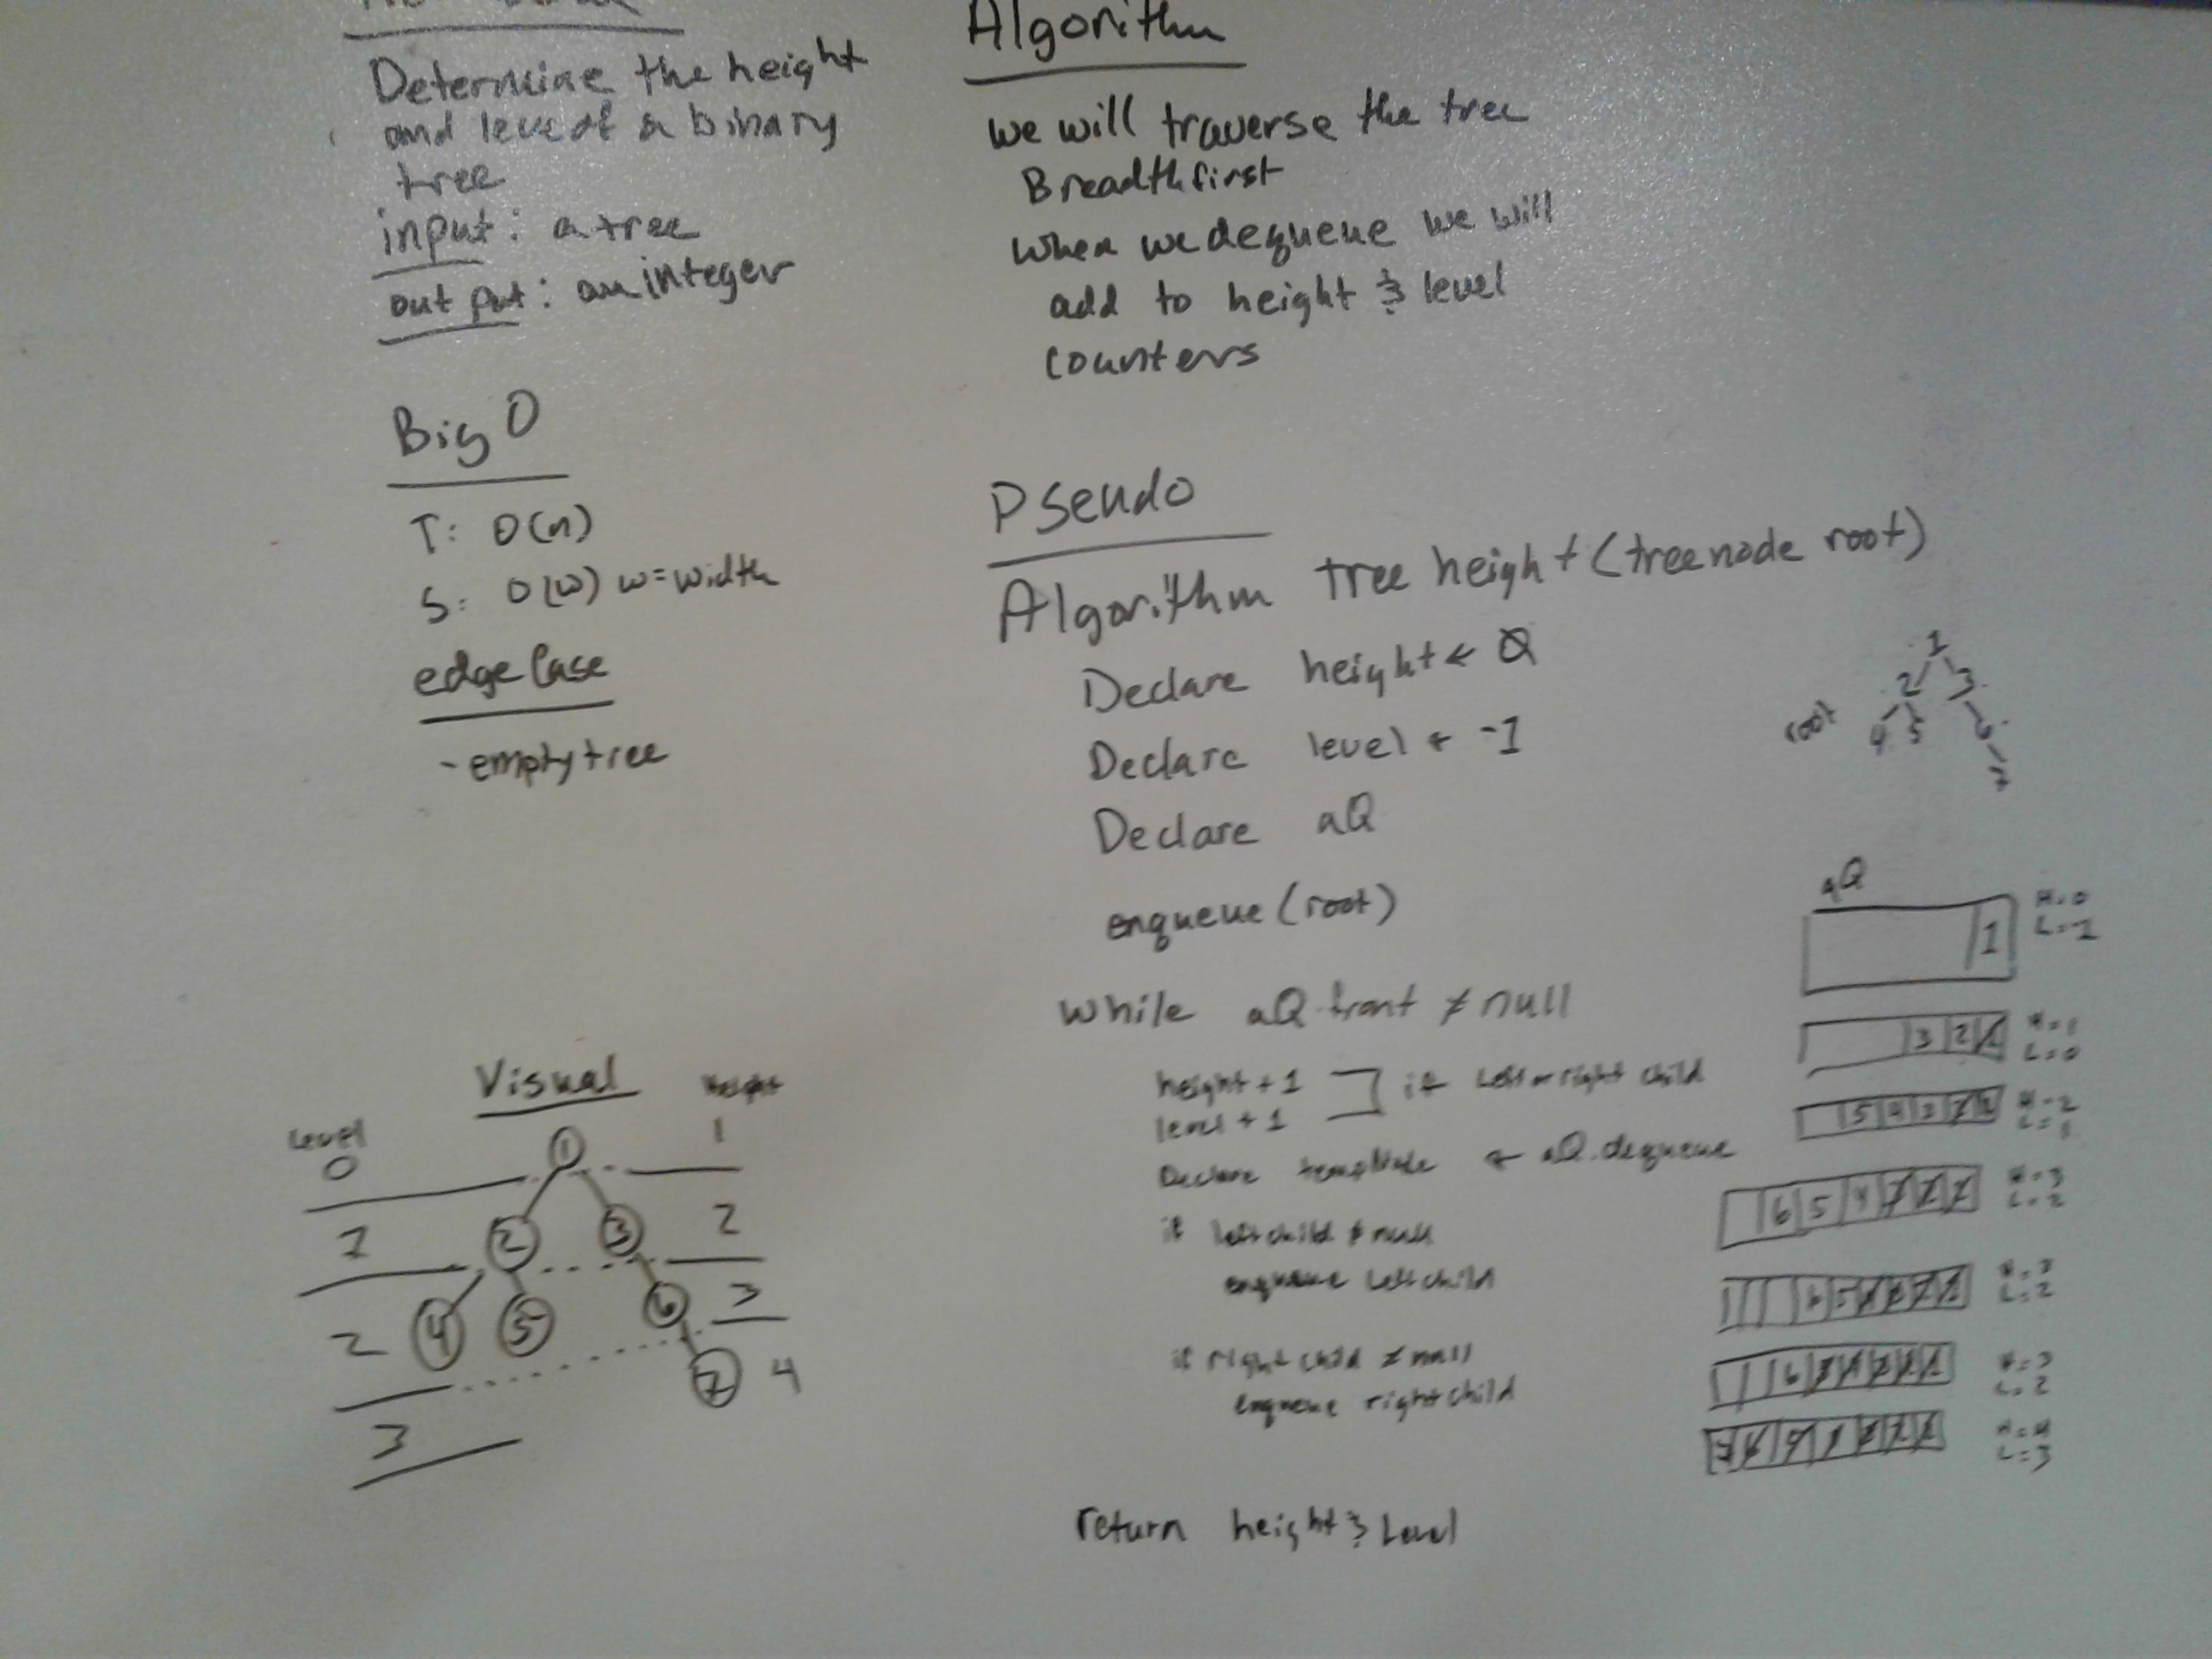 Determine the height
and level of a binary
tree
input: a tree
output: an integer
Big O
T: O(n)
S: O(w) w=width
edge Case
- empty tree
Visual
Level
Height
0
1
1
2
2
3
3
4
1
2
3
4
5
6
7
Algorithm
we will traverse the tree
Breadthfirst
when we dequeue we will
add to height & level
counters
Pseudo
Algorithm tree height (treenode root)
Declare height ← 0
Declare level ← -1
Declare aQ
enqueue (root)
while aQ.front ≠ null
height + 1
level + 1
if left or right child
Declare tempNode ← aQ.dequeue
if leftchild ≠ null
enqueue Leftchild
if rightchild ≠ null
enqueue rightchild
return height & Level
root
1
2 3
4 5 6
7
aQ
1
H=0
L=-1
3 2 1
H=1
L=0
5 4 3 2 1
H=2
L=1
6 5 4
H=3
L=2
6 5
H=3
L=2
6
H=3
L=2
H=4
L=3